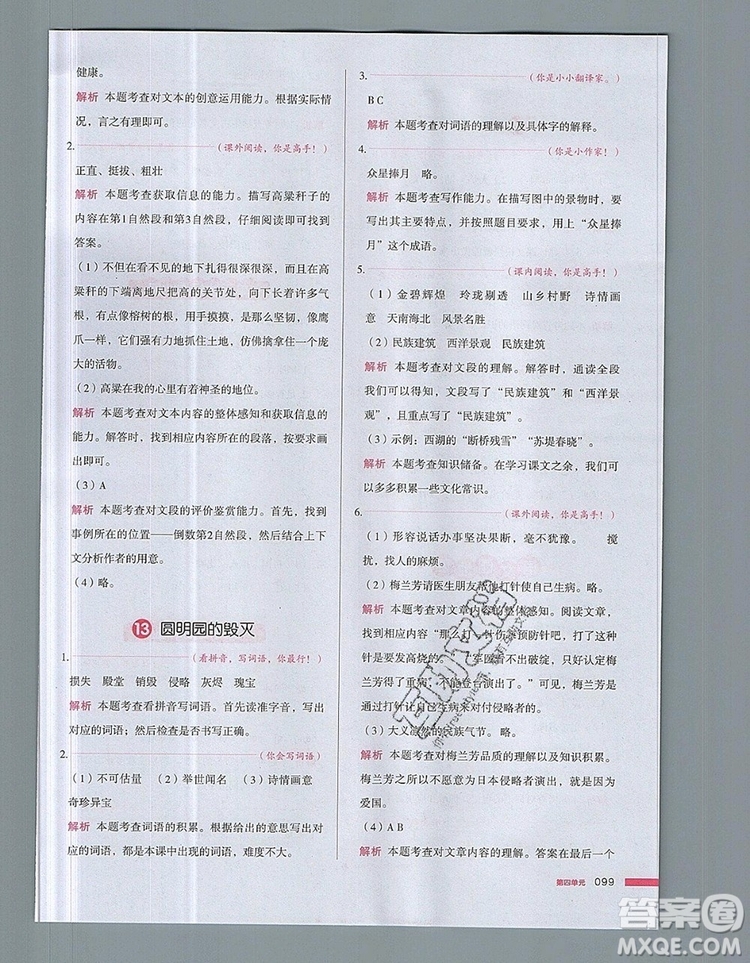 健康。
解析 本题考查对文本的创意运用能力。根据实际情
况，言之有理即可。
2.
（课外阅读，你是高手！）
正直、挺拔、粗壮
解析 本题考查获取信息的能力。描写高粱秆子的
内容在第1自然段和第3自然段，仔细阅读即可找到
答案。
（1）不但在看不见的地下扎得很深很深，而且在高
粱秆的下端离地尺把高的关节处，还长出许多气
根，有点像榕树的根，用手摸摸，是那么坚韧，像鹰
爪一样，它们强有力地抓住土地，仿佛擒拿住一个庞
大的活物。
（2）高粱在我的心里有着神圣的地位。
解析 本题考查对文本内容的整体感知和获取信息的
能力。解答时，找到相对应所在的段落，按要求回
答即可。
（3）A
解析 本题考查对文段的评价鉴赏能力。首先，找到
事例所在的位置——倒数第2自然段，然后结合上下
文分析作者的用意。
（4）略。
13 圆明园的毁灭
1.
（看拼音，写词语，你最行！）
损失 殿堂 销毁 侵略 灰烬 瑰宝
解析 本题考查看拼音写词语。首先读准字音，写出
对应的词语，然后检查是否书写正确。
2.
（你会写词语）
（1）不可估量 （2）举世闻名 （3）诗情画意
奇珍异宝
解析 本题考查词语的积累。根据给出的意思写出对
应的词语，都是本课中出现过的词语，难度不大。
3.
（你是小小翻译家。）
B C
解析 本题考查对词语的理解以及具体字的解释。
4.
（你是小作家！）
众星捧月 略。
解析 本题考查写作能力。在描写图中的景物时，要
抓住其主要特点，并按照题目要求，用上“众星捧
月”这个成语。
5.
（课内阅读，你是高手！）
（1）金碧辉煌 玲珑剔透 山乡村野 诗情画
意 天南海北 风景名胜
（2）民族建筑 西洋景观 民族建筑
解析 本题考查对文段的理解。解答时，通读全段
我们可以知道，文段写了“民族建筑”和“西洋景
观”，并且侧重写了“民族建筑”。
（3）示例：西湖的“断桥残雪”“苏堤春晓”。
解析 本题考查知识储备。在学习课文之余，我们可
以多多积累一些文化常识。
6.
（课外阅读，你是高手！）
（1）形容说话办事坚决果断，毫不犹豫。 搅
扰，找人的麻烦。
（2）梅兰芳请医生朋友帮他打针使自己生病。略。
解析 本题考查对文章内容的整体感知。阅读文章，
可以从
得了重病，不能登台演出了。”可以知道梅兰芳是通
过打针让自己生病来对付侵略者的。
（3）大义凛然的民族气节。略。
解析 本题考查对梅兰芳品质的理解以及知识积累。
梅兰芳至死都不愿意为日本侵略者演出，就是因为
爱国。
（4）A B
解析 本题考查对文章内容的理解。答案在最后一个
第四单元 099
答案圈
MXQE.COM